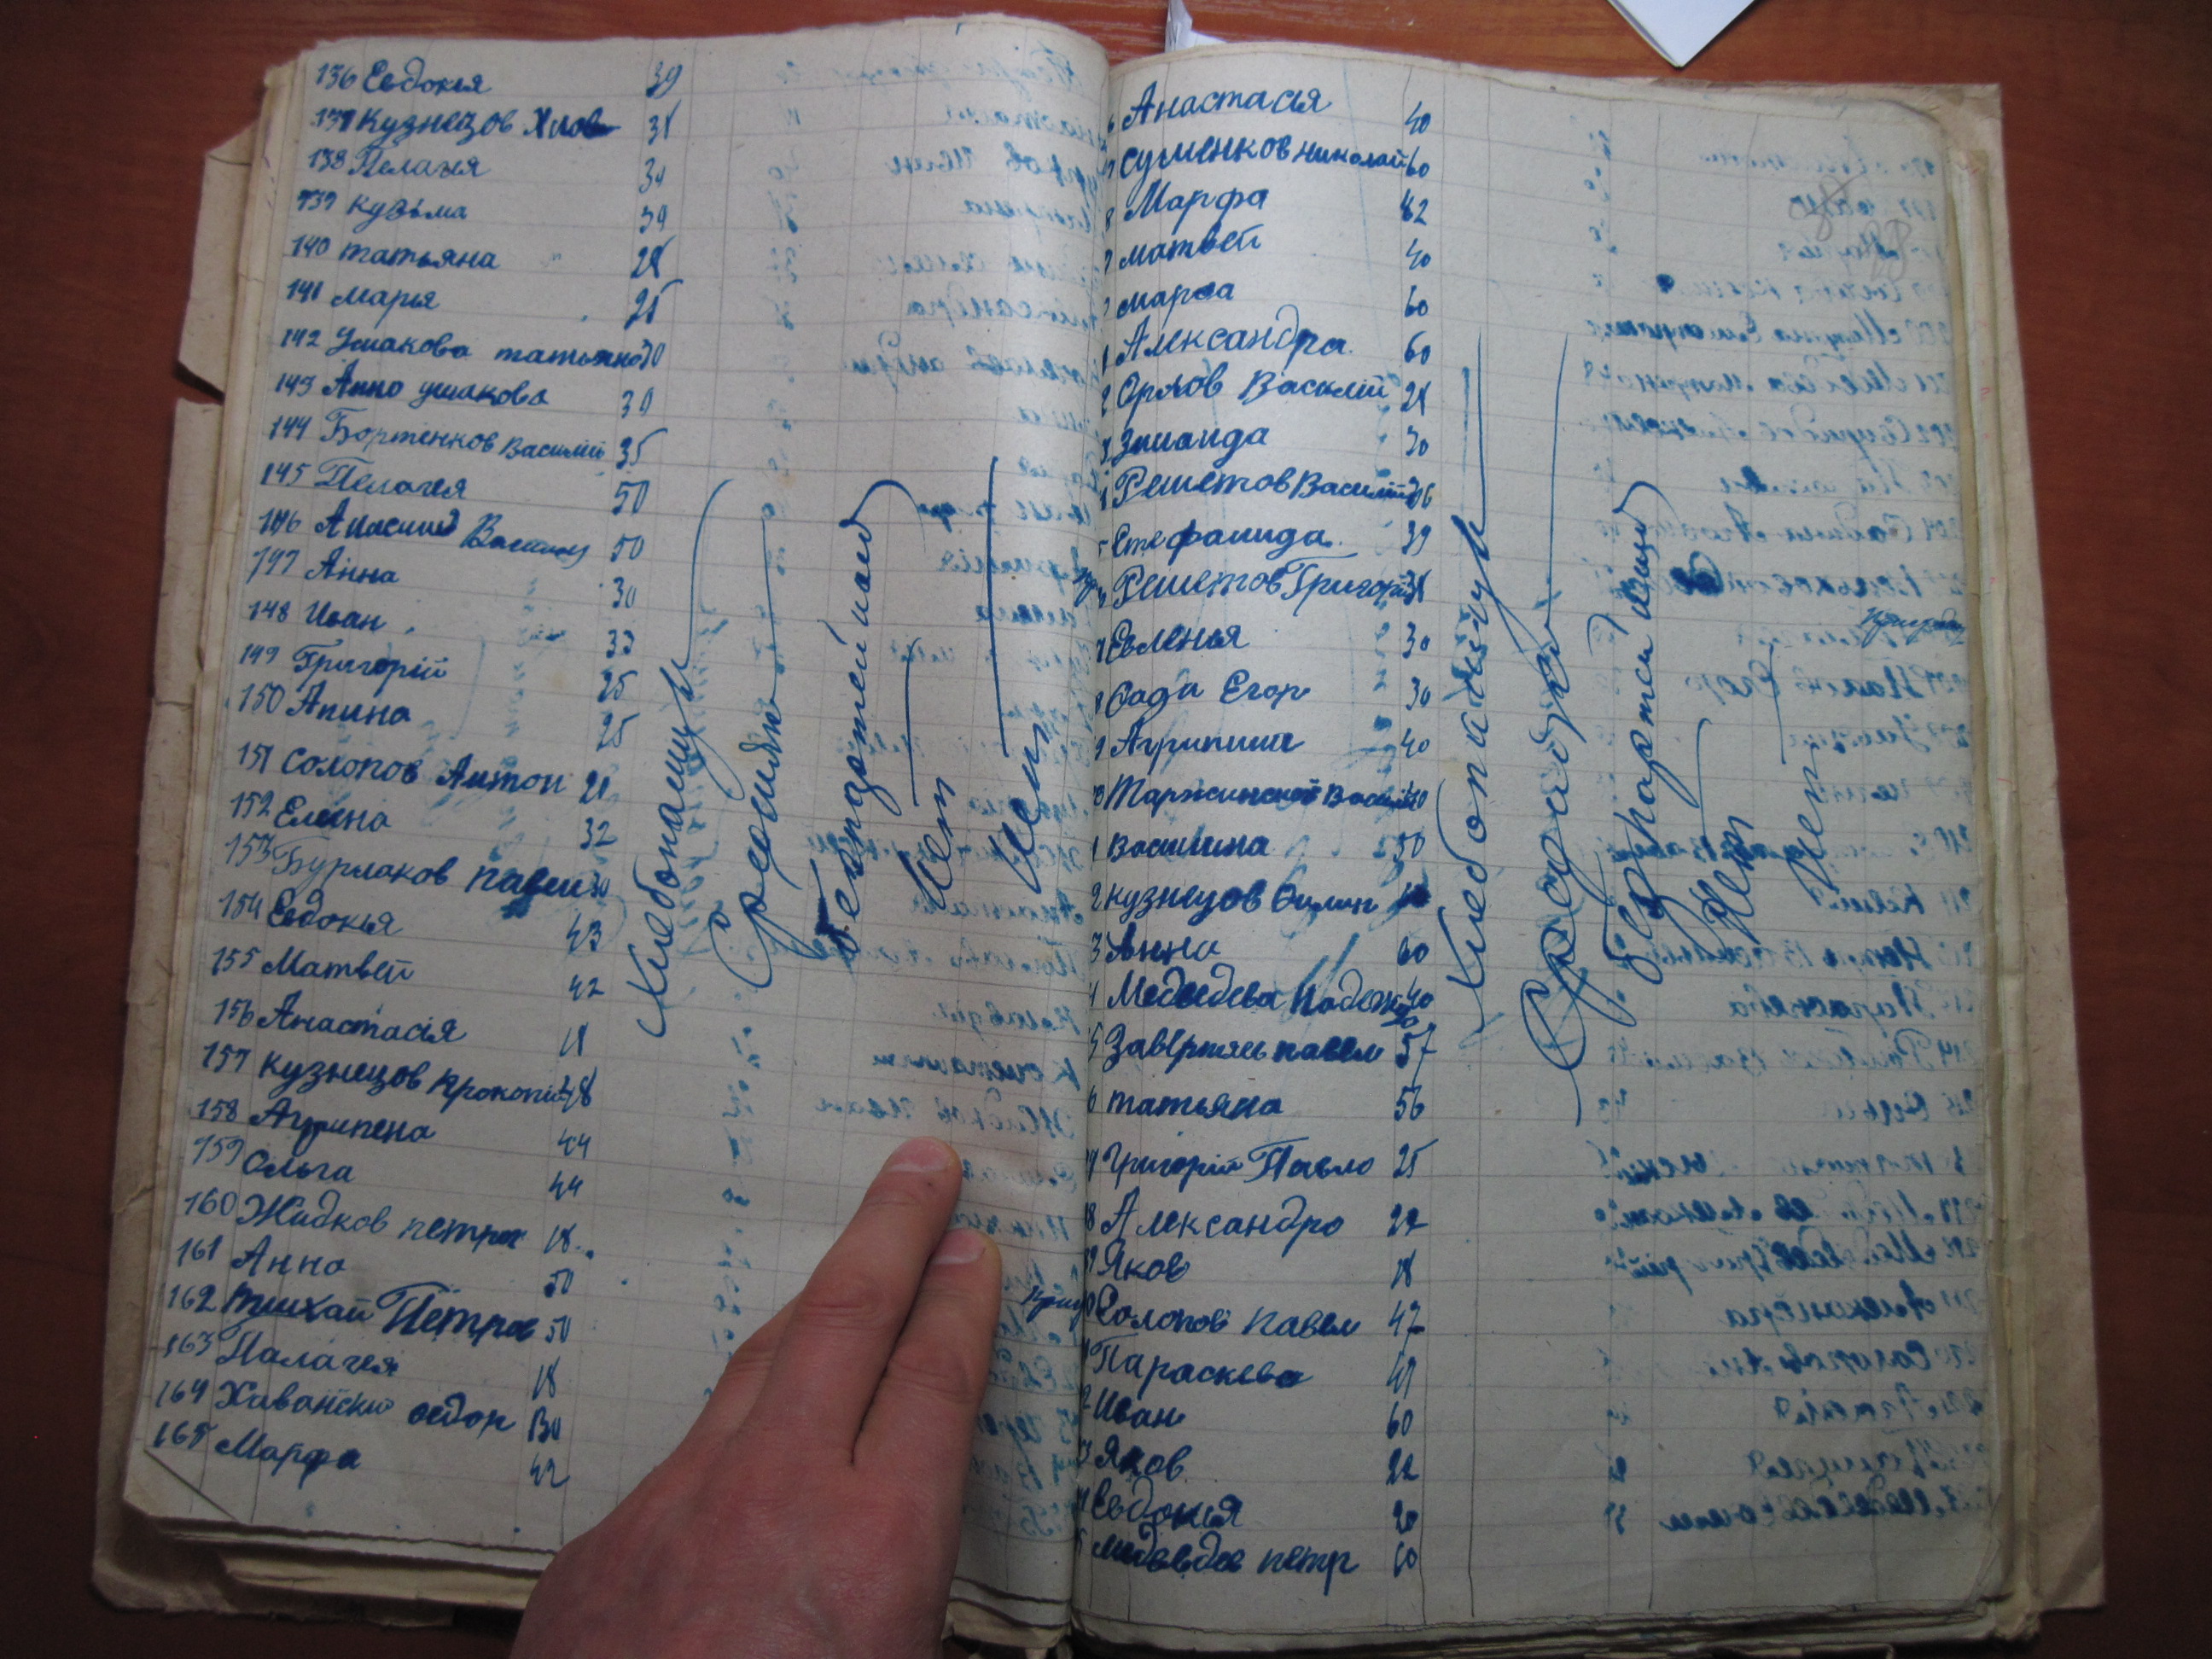 136 Евдокия 39
137 Кузнецов
138 Пелагея 30
139 Кузьма 39
140 татьяна 28
141 марья 25
142 Ушакова татьяна 30
143 Анно ушакова 39
144 Бортенков Василий 35
145 Пелагея 50
146 50
147 Анна 30
148 Иван 33
149 Григорій 25
150 Анина 25
151 Солопов Антон 21
152 Елена 32
153 Бурлаков павел 30
154 Евдокья 43
155 Матвей 42
156 Анастасія 18
157 Кузнецов прокопій 48
158 Агрипена 44
159 Ольга 44
160 Жидков петр 18
161 Анно 50
162 Петров 50
163 Палагея 18
164 Хавански 30
165 Марфа 42
Хлебопашцы
Средний
безпартейной
Нет
Нет
Анастасія 40
Суменков николай 60
Марфа 62
матвей 40
марфа 60
Александра 60
Орлов Василій 28
Зинаида 30
Решетов Василий 36
Стефанида 39
Решетов Григорій 31
Евленья 30
Егор 30
Агрипина 40
Василина 50
Кузнецов
Анно 60
Медведева Надежда 40
павел 57
татьяна 56
Григорій Павло 25
Александро 22
Яков 18
Солопов павел 47
Параскева 41
Иван 60
Яков 22
Евдокия 20
петр 60
Хлебопашцы
Средняя
безпартейный
Нет
Нет